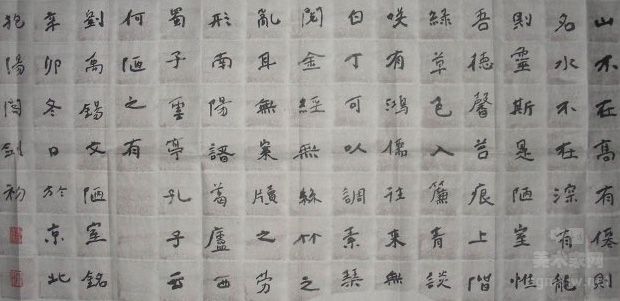 山不在高有僊則
名水不在深有龍
則靈斯是陋室惟
吾德馨苔痕上階
綠草色入簾青談
咲有鴻儒往來無
白丁可以調素琴
閱金經無絲竹之
亂耳無案牘之劳
形南陽諸葛廬西
蜀子雲亭孔子云
何陋之有
劉禹錫文陋室銘
辛卯冬日於京北
抱陽閆剑初
美术家网